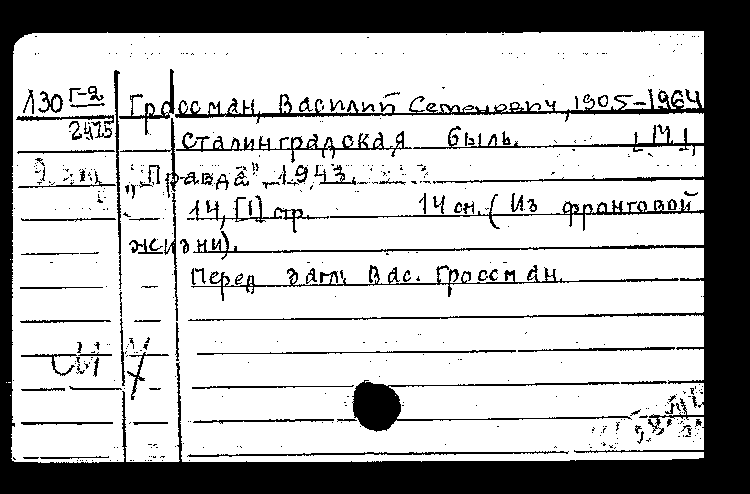 130 Г-2 Гроссман, Василий Семенович, 1905-1964
2475
Сталинградская быль. [М],
"Правда" 1943.
14, [1] стр. 14 см. (Из фронтовой
жизни).
Перед загл. Вас. Гроссман.